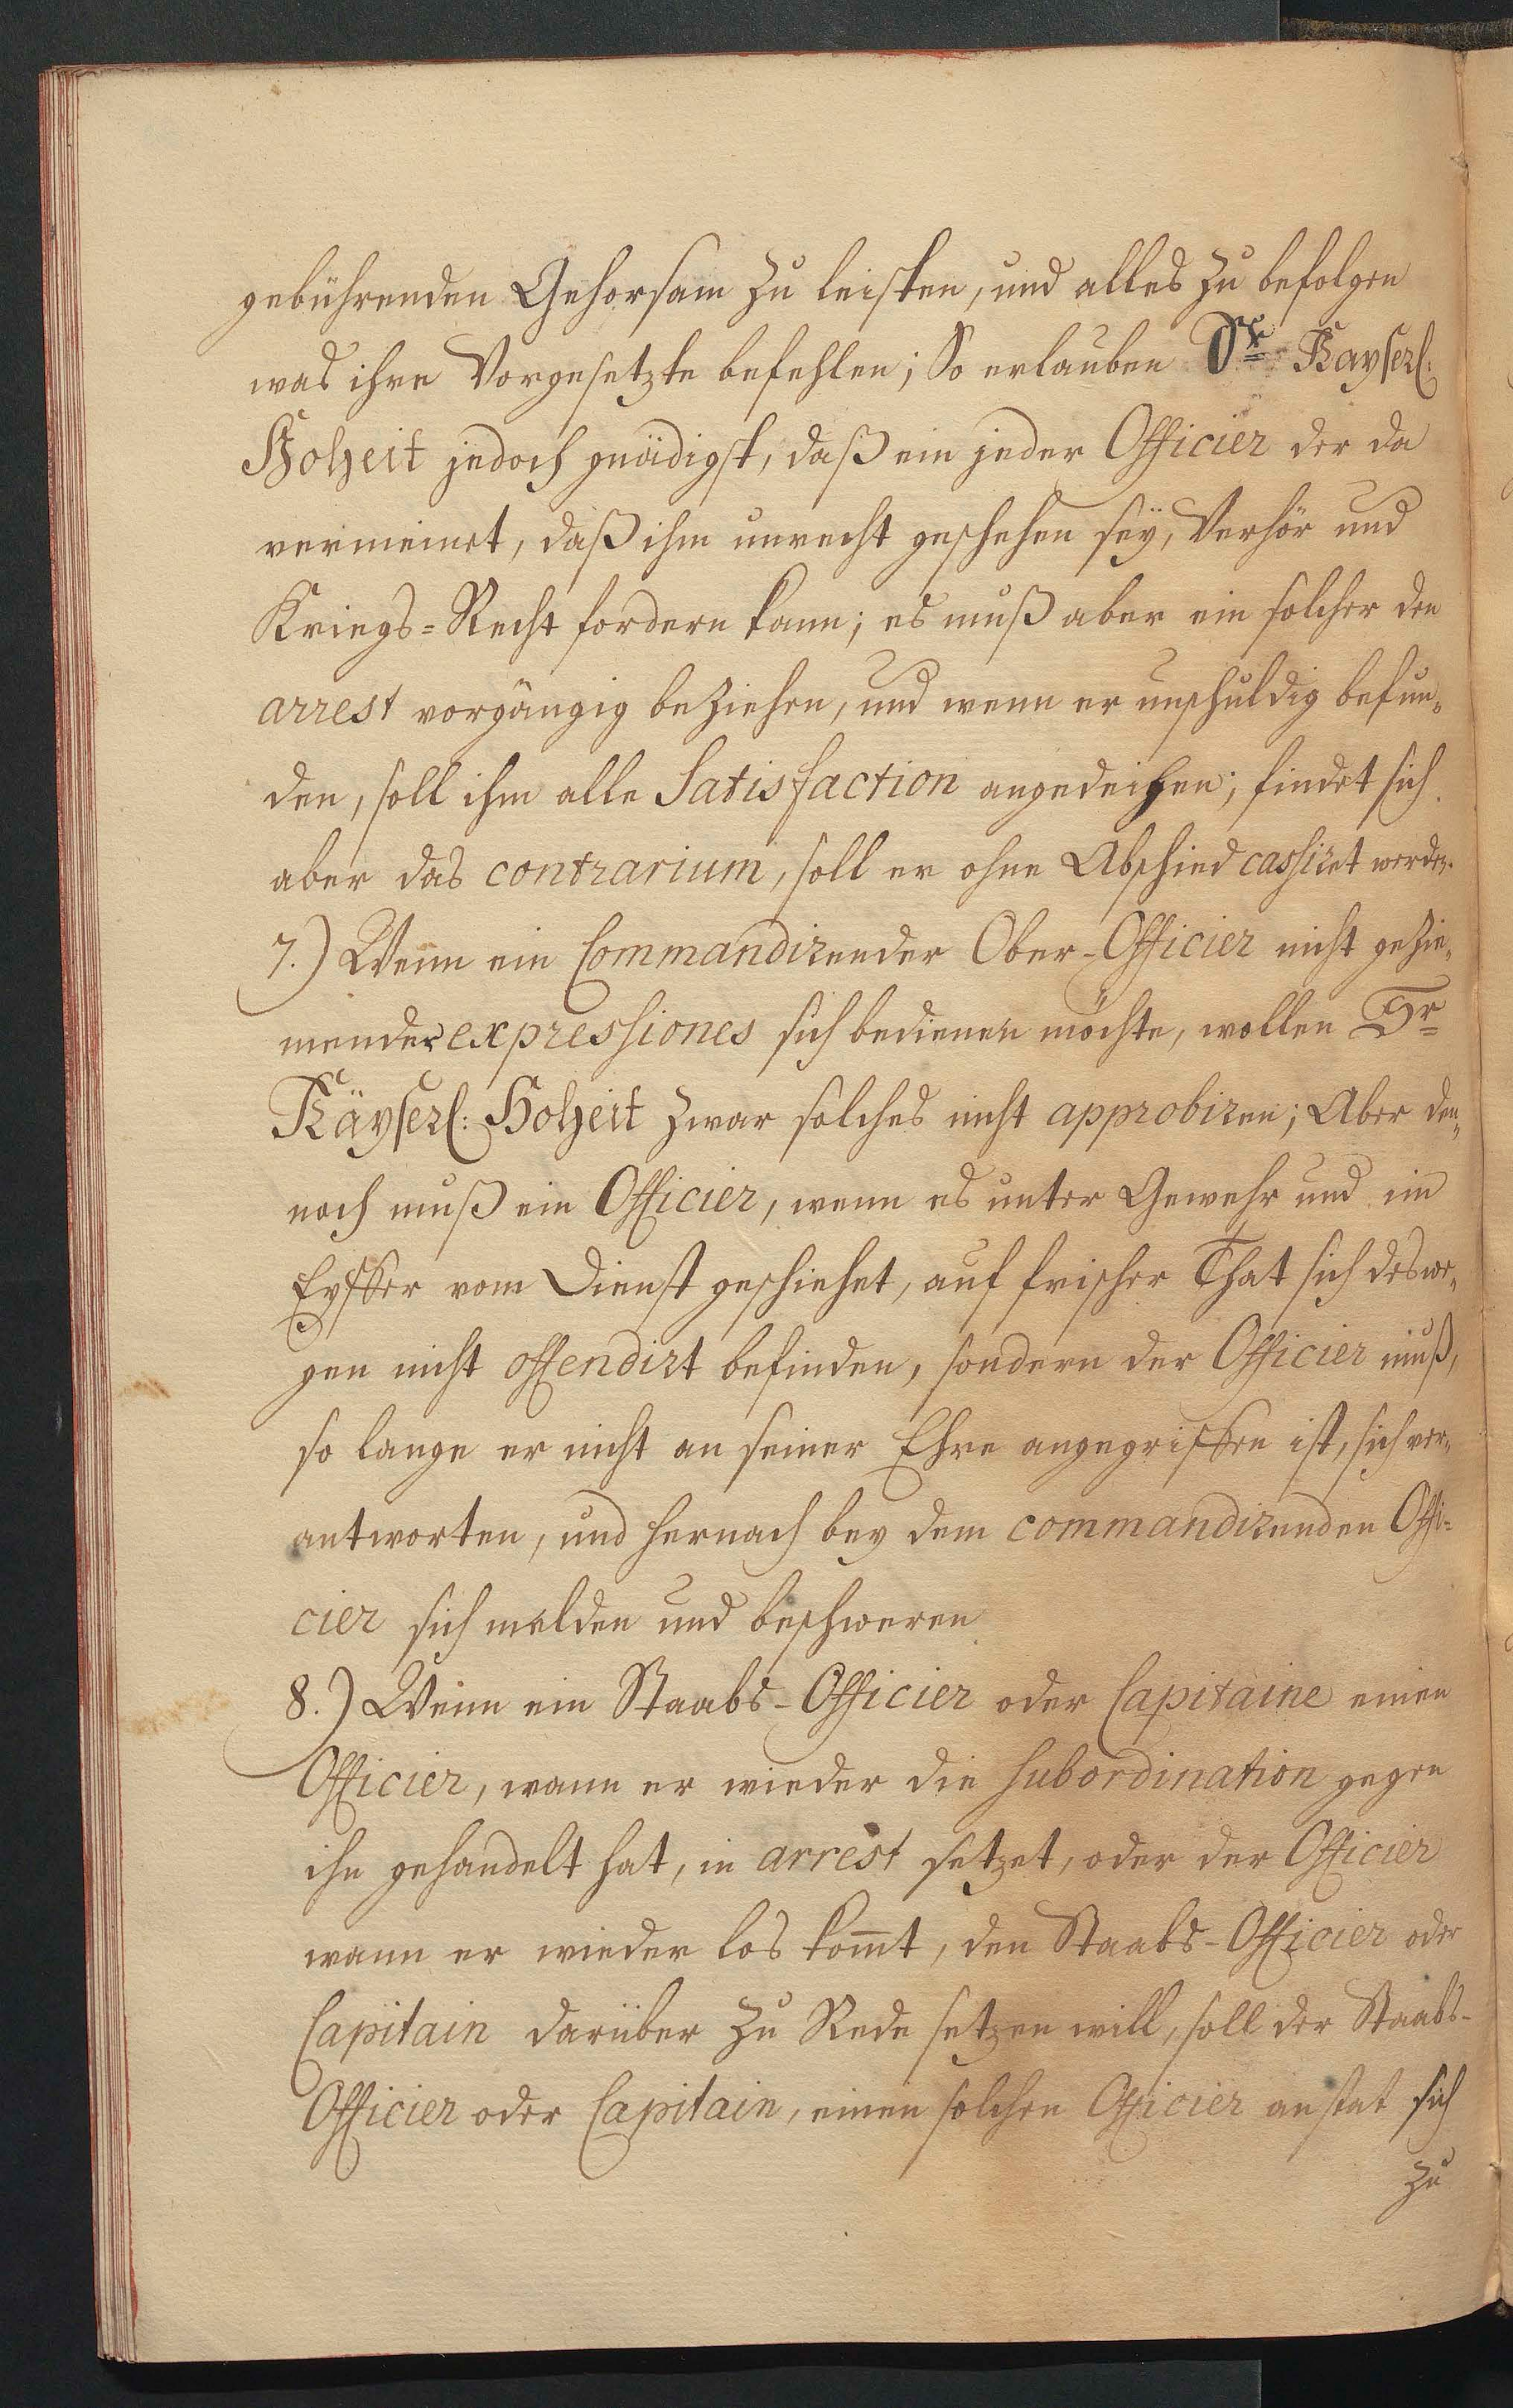 gebührenden Gehorsam zu leisten, und alles zu befolgen
was ihre Vorgesetzte befehlen; So erlauben Sr. Kayserl:
Hoheit jedoch gnädigst, daß ein jeder Officier der da
vermeinet, daß ihm unrecht geschehen seÿ, Verhör und
Kriegs=Recht fordern kann; es muß aber ein solcher den
arrest vorgängig beziehen, und wenn er unschuldig befun„
den, soll ihm alle Satisfaction angedeihen; findet sich
aber das contrarium, soll er ohne Abschied cassiret werden.
7.) Wenn ein Commandirender Ober-Officier nicht gezie„
mender expressiones sich bedienen möchte, wollen Sr
Käyserl: Hoheit zwar solches nicht approbiren; Aber den„
noch muß ein Officier, wenn es unter Gewehr und im
Eyffer vom Dienst geschiehet, auf frischer That sich deswe„
gen nicht offendirt befinden, sondern der Officier muß,
so lange er nicht an seiner Ehre angegriffen ist, sich ver„
antworten, und hernach bey dem commandirenden Offi=
cier sich melden und beschweren
8.) Wenn ein Staabs-Officier oder Capitaine einen
Officier, wann er wieder die Subordination gegen
ihn gehandelt hat, in arrest setzet, oder der Officier
wann er wieder los komt, den Staabs-Officier oder
Capitain darüber zu Rede setzen will, soll der Staabs-
Officier oder Capitain, einen solchen Officier anstat sich
zu